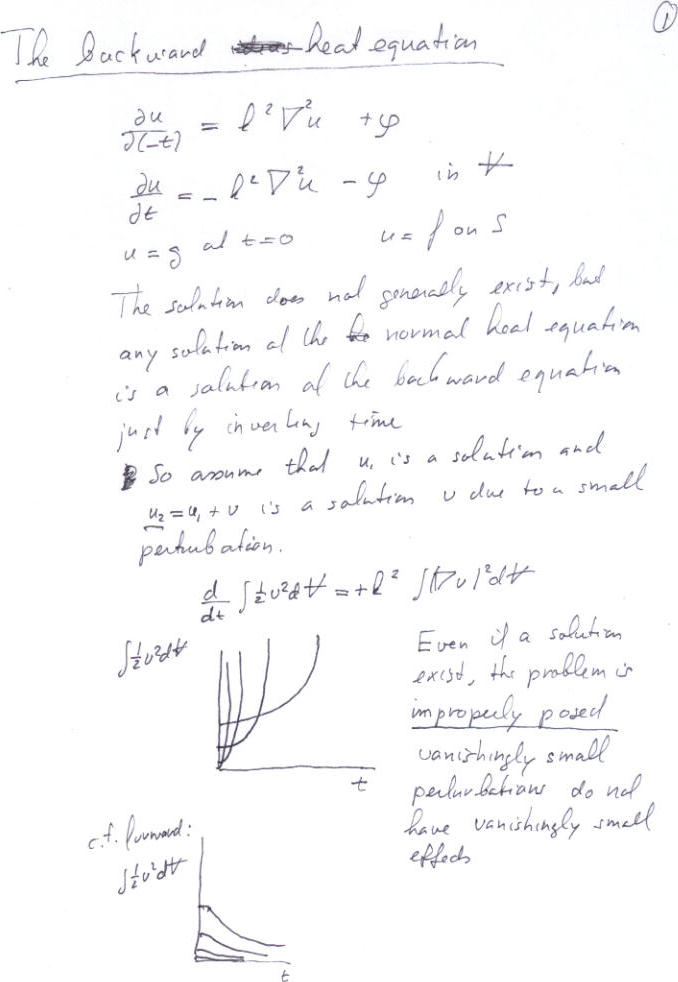 ①
The backward heat equation
∂u/∂(-t) = k²∇²u + φ
∂u/∂t = - k²∇²u - φ in V
u = g at t=0 u = f on S
The solution does not generally exist, but
any solution of the normal heat equation
is a solution of the backward equation
just by inverting time
So assume that u₁ is a solution and
u₂ = u₁ + v is a solution v due to a small
perturbation.
d/dt ∫½v²dV = +k² ∫|∇v|²dV
∫½v²dV
t
Even if a solution
exist, the problem is
improperly posed
vanishingly small
perturbations do not
have vanishingly small
effects
c.f. forward:
∫½v²dV
t